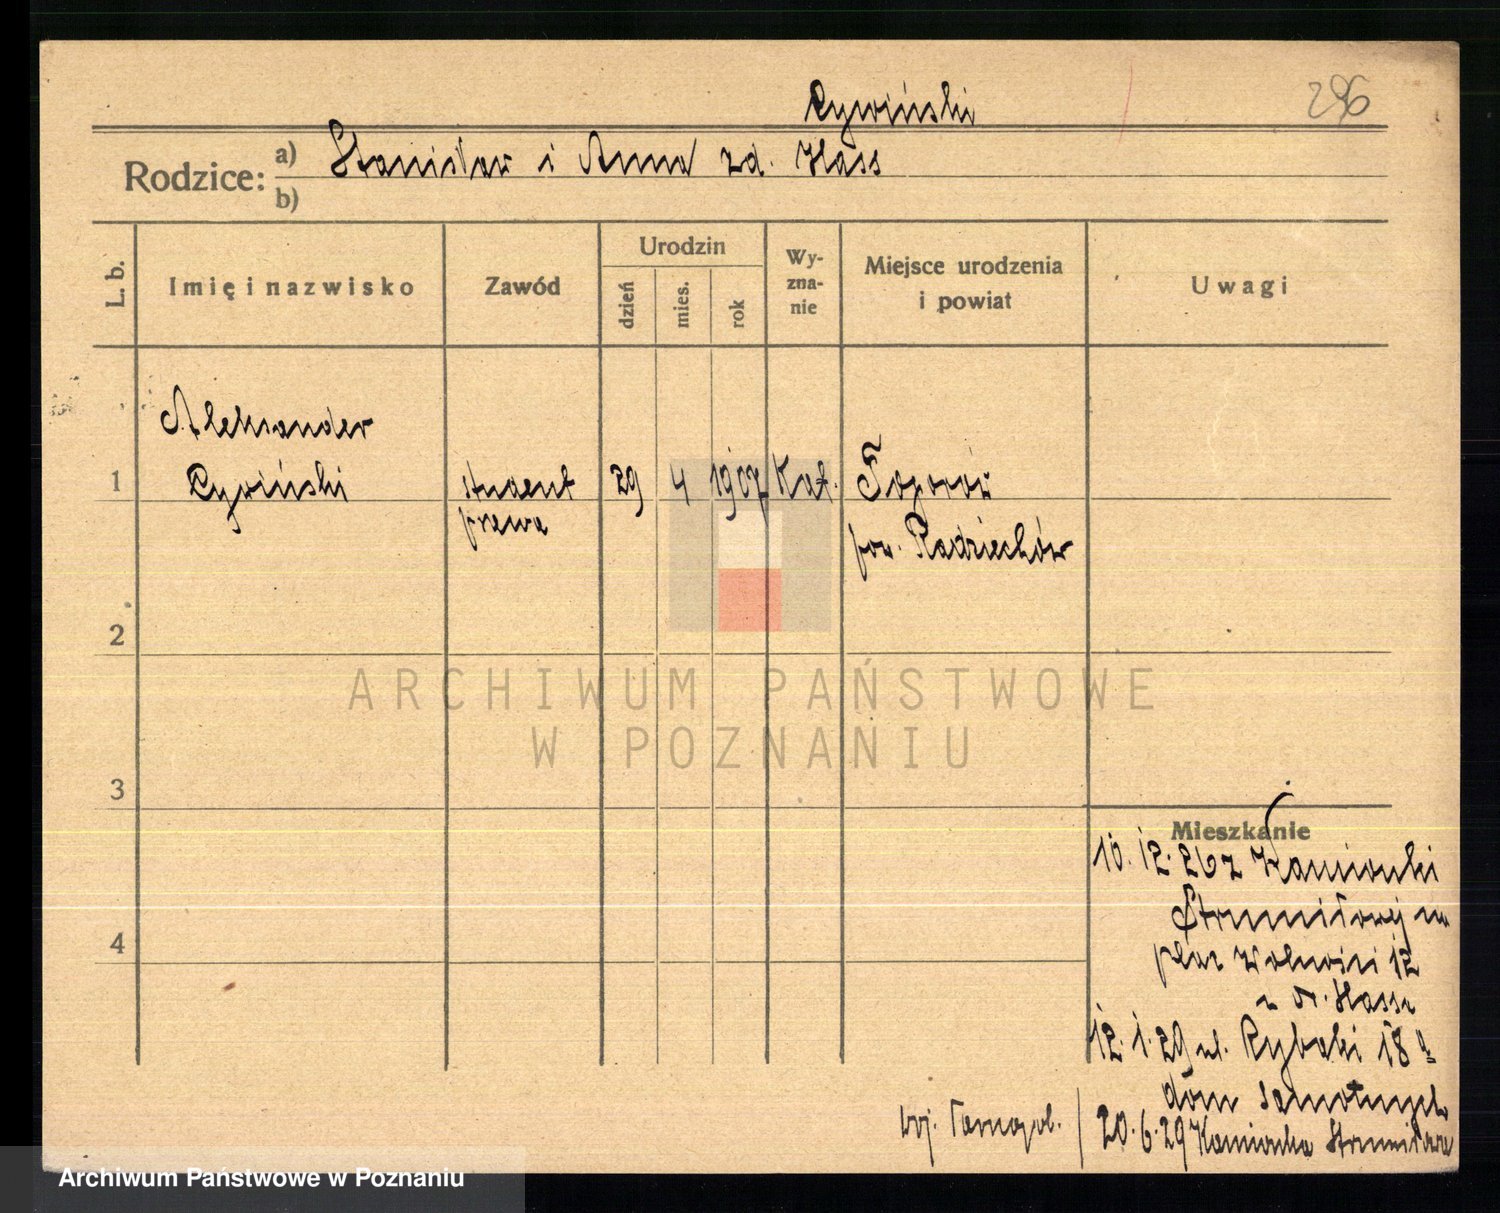 Cywiński 296
Rodzice: a) Stanisław i Anna zd. Hass
b)
L. b.
Imię i nazwisko
Zawód
Urodzin
dzień
mies.
rok
Wy-
zna-
nie
Miejsce urodzenia
i powiat
Uwagi
Aleksander
1 Cywiński student 29 4 1907 Kat. Toporów
prawa pow. Radziechów
2
ARCHIWUM PAŃSTWOWE
W POZNANIU
3
Mieszkanie
10. 12. 26 z Kamionki
Strumiłowej na
4
plac Wolności 12
u dr. Hassa
12. 1. 29 ul. Rybaki 18a
dom samotnych
woj. Tarnopol. 20. 6. 29 Kamionka Strumiłowa
Archiwum Państwowe w Poznaniu